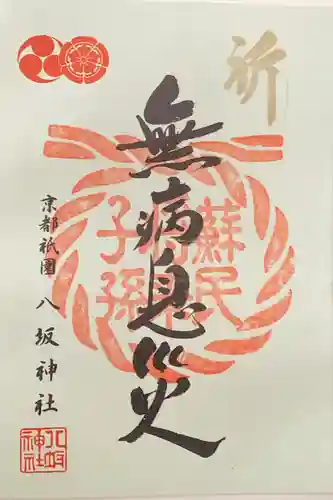 祈
無病息災
蘇民将来
子孫
京都祇園 八坂神社
八坂神社